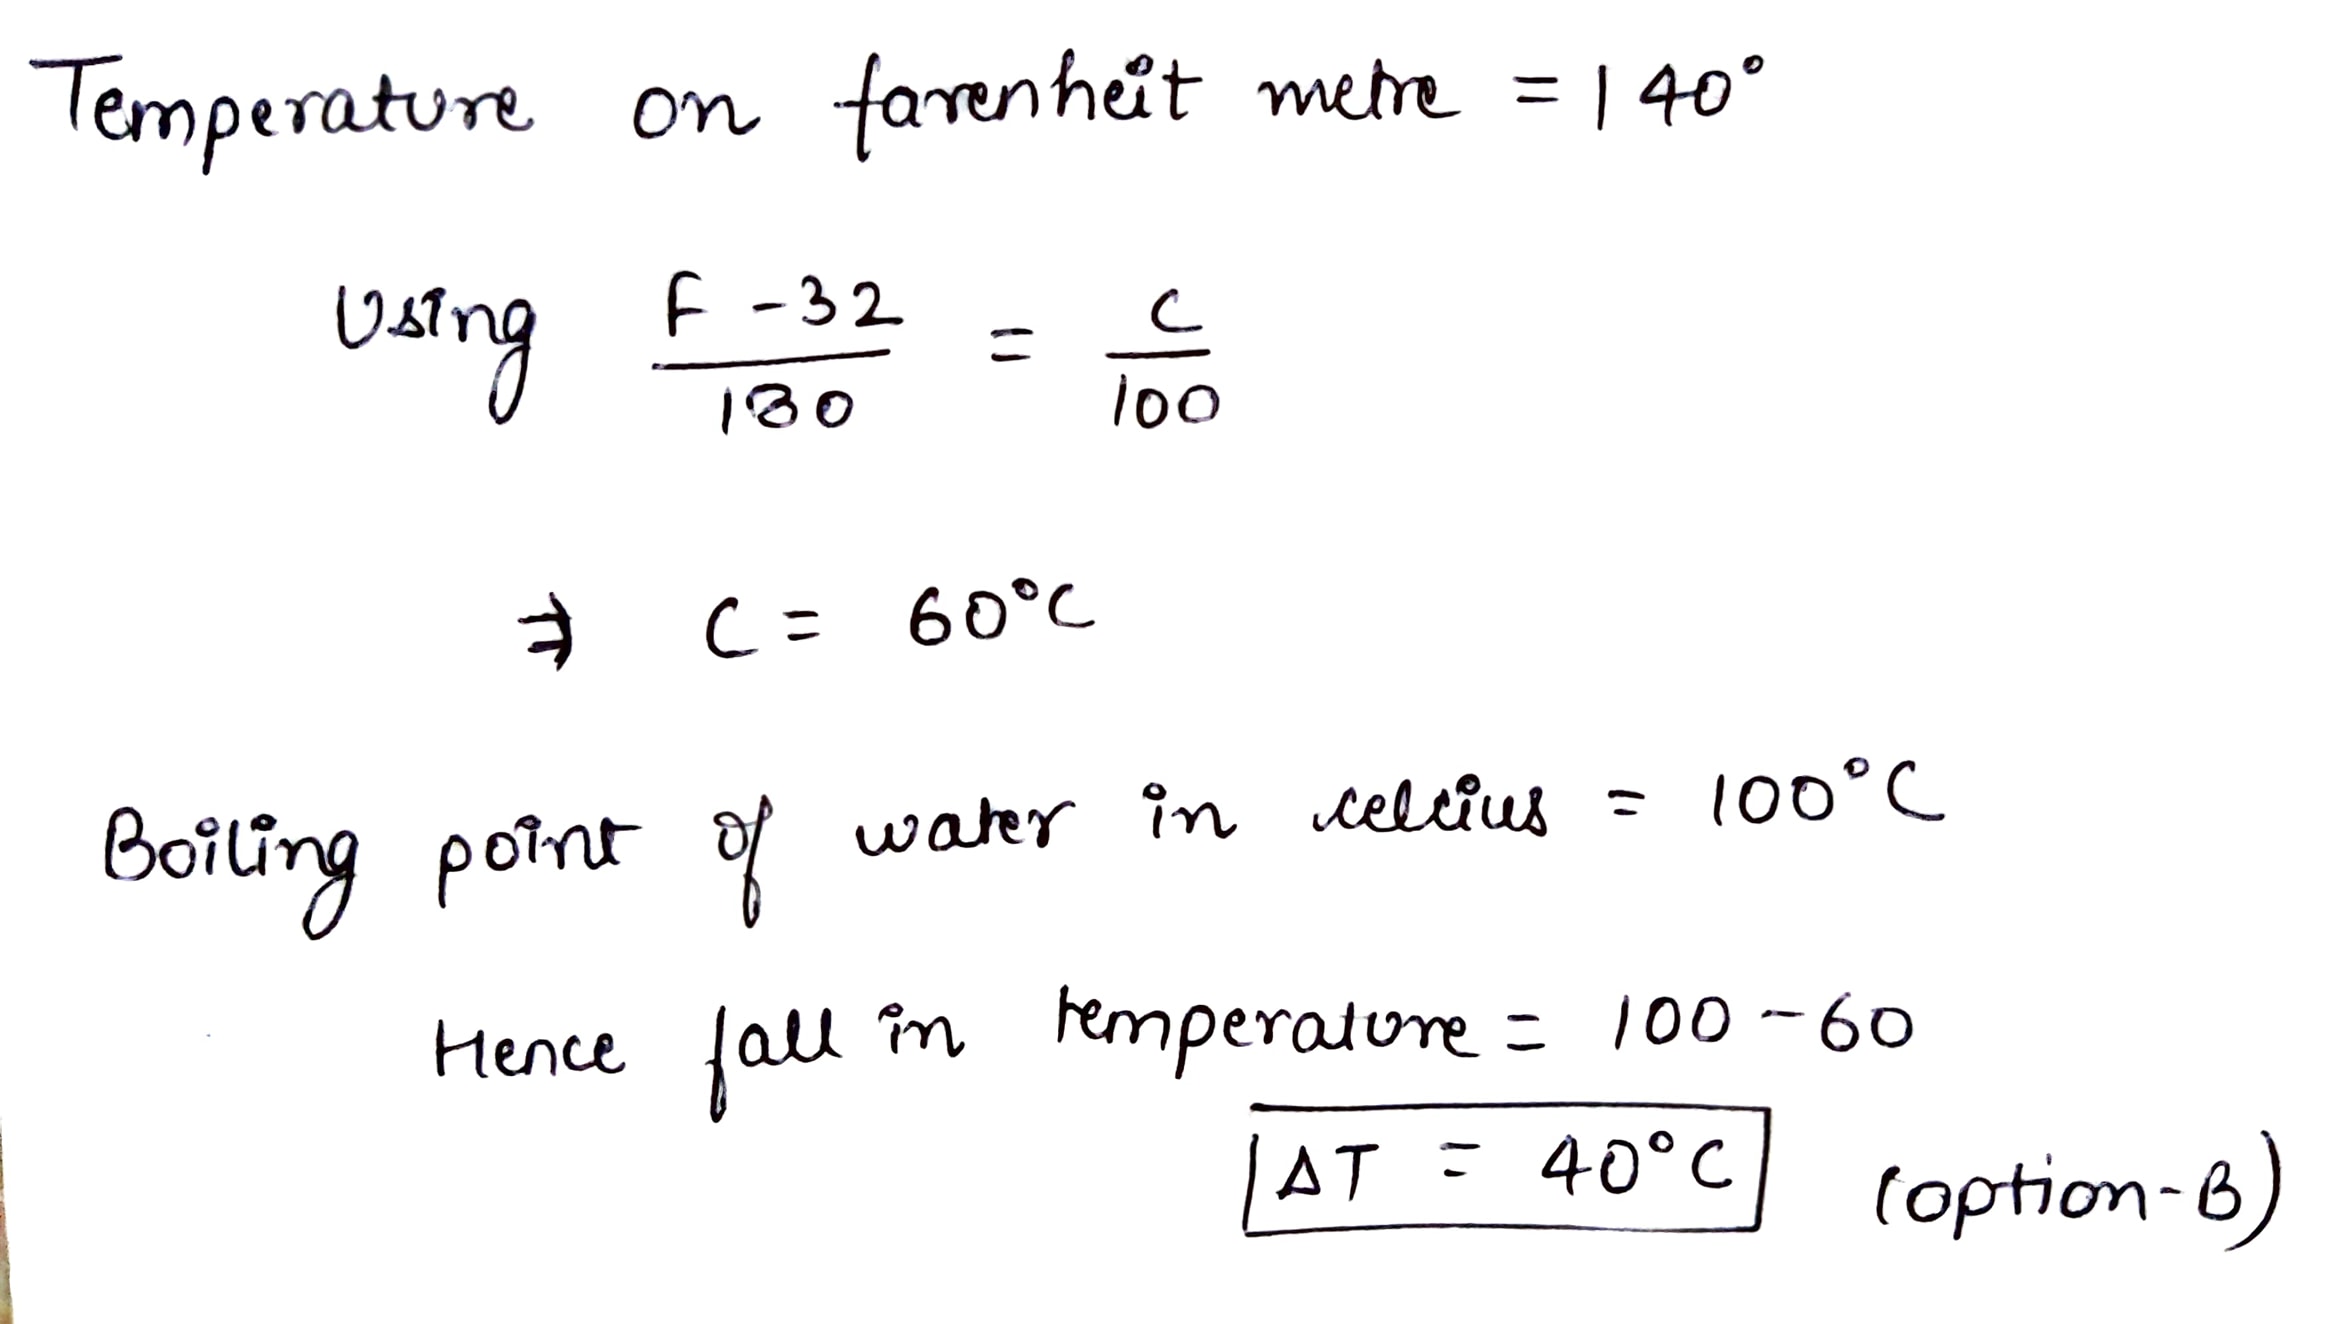 Temperature on farenheit metre = 140°
Using F - 32 / 180 = C / 100
⇒ C = 60°C
Boiling point of water in celcius = 100°C
Hence fall in temperature = 100 - 60
ΔT = 40°C (option-B)